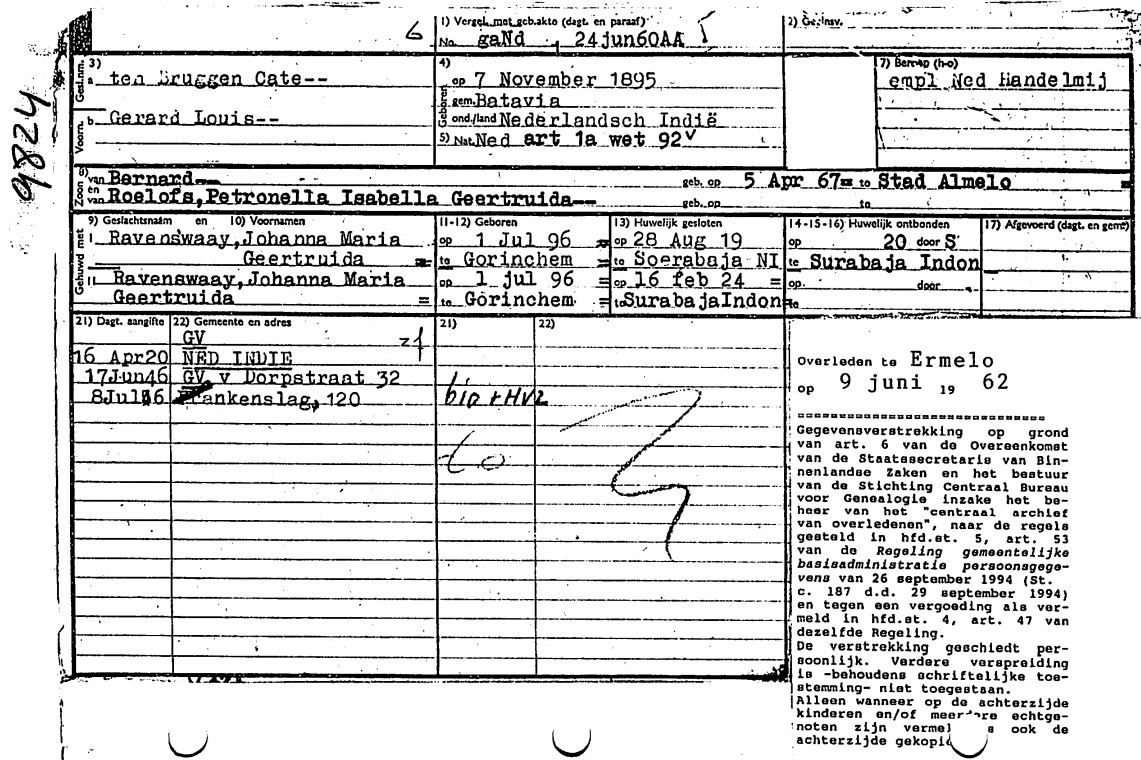 1) Vergel. met geb.akte (dagt. en paraaf)
2) Gezinsv.
6 No. gaNd, 24jun60AA
9824
3) Gesl.nm. a ten Bruggen Cate--
Voorn. b Gerard Louis--
4) Geboren op 7 November 1895
gem. Batavia
ond./land Nederlandsch Indië
5) Nat. Ned art 1a wet 92v
7) Beroep (h-o)
empl Ned Handelmij
8) Zoon van Bernard-- geb. op 5 Apr 67== te Stad Almelo =
en van Roelofs,Petronella Isabella Geertruida-- geb. op te
Gehuwd met
9) Geslachtsnaam en 10) Voornamen
11-12) Geboren
13) Huwelijk gesloten
14-15-16) Huwelijk ontbonden
17) Afgevoerd (dagt. en gemt)
I Ravenswaay,Johanna Maria op 1 Jul 96 = op 28 Aug 19 op 20 door S
Geertruida = te Gorinchem = te Soerabaja NI te Surabaja Indon
II Ravenswaay,Johanna Maria op 1 jul 96 = op 16 feb 24 = op. door
Geertruida = te Gorinchem = te SurabajaIndon= te
21) Dagt. aangifte 22) Gemeente en adres 21) 22)
GV
16 Apr20 NED INDIE
17Jun46 GV v Dorpstraat 32
8Jul46 Frankenslag, 120
Overleden te Ermelo
op 9 juni 19 62
==============================
Gegevensverstrekking op grond
van art. 6 van de Overeenkomst
van de Staatssecretaris van Bin-
nenlandse Zaken en het bestuur
van de Stichting Centraal Bureau
voor Genealogie inzake het be-
heer van het "centraal archief
van overledenen", naar de regels
gesteld in hfd.st. 5, art. 53
van de Regeling gemeentelijke
basisadministratie persoonsgege-
vens van 26 september 1994 (St.
c. 187 d.d. 29 september 1994)
en tegen een vergoeding als ver-
meld in hfd.st. 4, art. 47 van
dezelfde Regeling.
De verstrekking geschiedt per-
soonlijk. Verdere verspreiding
is -behoudens schriftelijke toe-
stemming- niet toegestaan.
Alleen wanneer op de achterzijde
kinderen en/of meerdere echtge-
noten zijn ook de
achterzijde